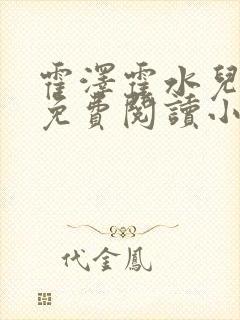 霍澤霍水兒
免費閱讀小
代金鳳